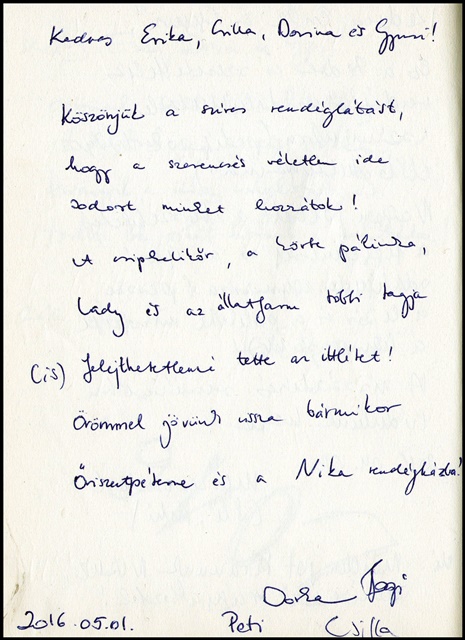 Kedves Erika, Csilla, Dorina és Gyuri!
Köszönjük a szíves vendéglátást,
hogy a szerencsés véletlen ide
sodort minket hozzátok!
A csipkelikőr, a körte pálinka,
Lady és az állatfarm többi tagja
(is) felejthetetlenné tette az ittlétet!
Örömmel jövünk vissza bármikor
Őriszentpéterre és a Nika vendégházba!
Dorka
2016.05.01. Peti Csilla